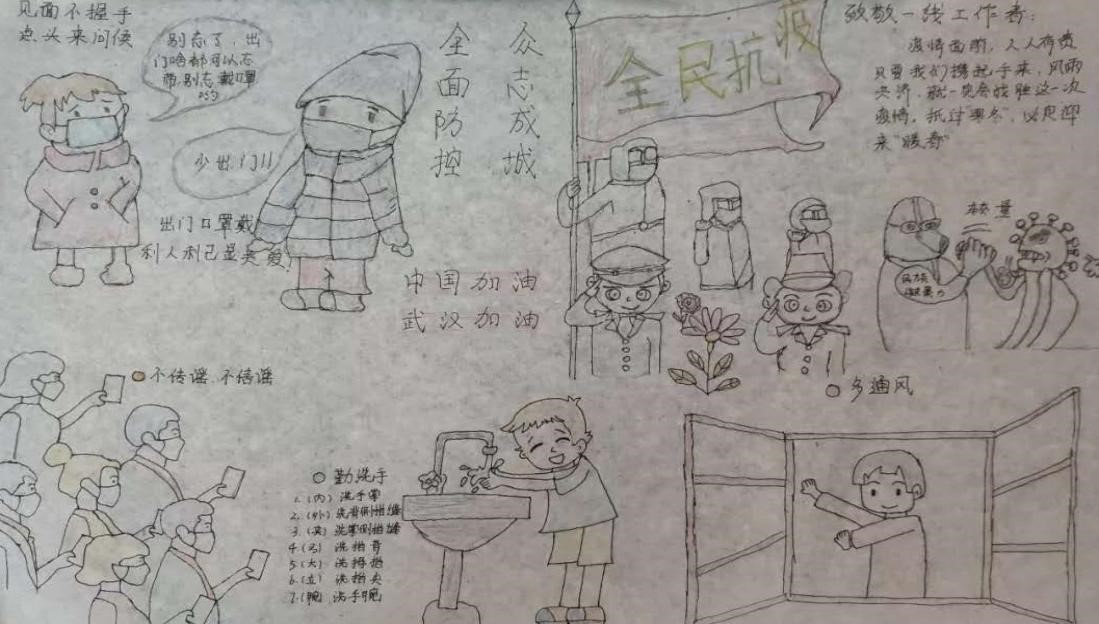 见面不握手
点头来问候
别忘了，出
门啥都可以忘
带，别忘戴口罩
少出门！！
出门口罩戴
利人利己显关爱！
全面防控
众志成城
中国加油
武汉加油
全民抗疫
致敬一线工作者：
疫情面前，人人有责
只要我们携起手来，风雨
共济，就一定会战胜这一次
疫情，抵过“寒冬”，以足迎
来“暖春”
较量
民族
凝聚力
不传谣、不信谣
勤洗手
1.（内）洗手掌
2.（外）洗背侧指缝
3.（夹）洗掌侧指缝
4（弓）洗指背
5（大）洗拇指
6.（立）洗指尖
7.（腕）洗手腕
多通风